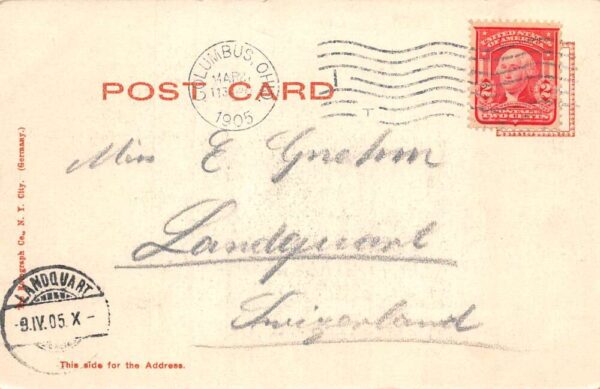 COLUMBUS, OHIO
MAR
1905
UNITED STATES
OF AMERICA
2 2
POSTAGE
TWO CENTS
POST CARD
Miss E. Gnehm
Landquart
Swizerland
graph Co., N. Y. City. (Germany.)
LANDQUART
-9.IV.05.X-
This side for the Address.